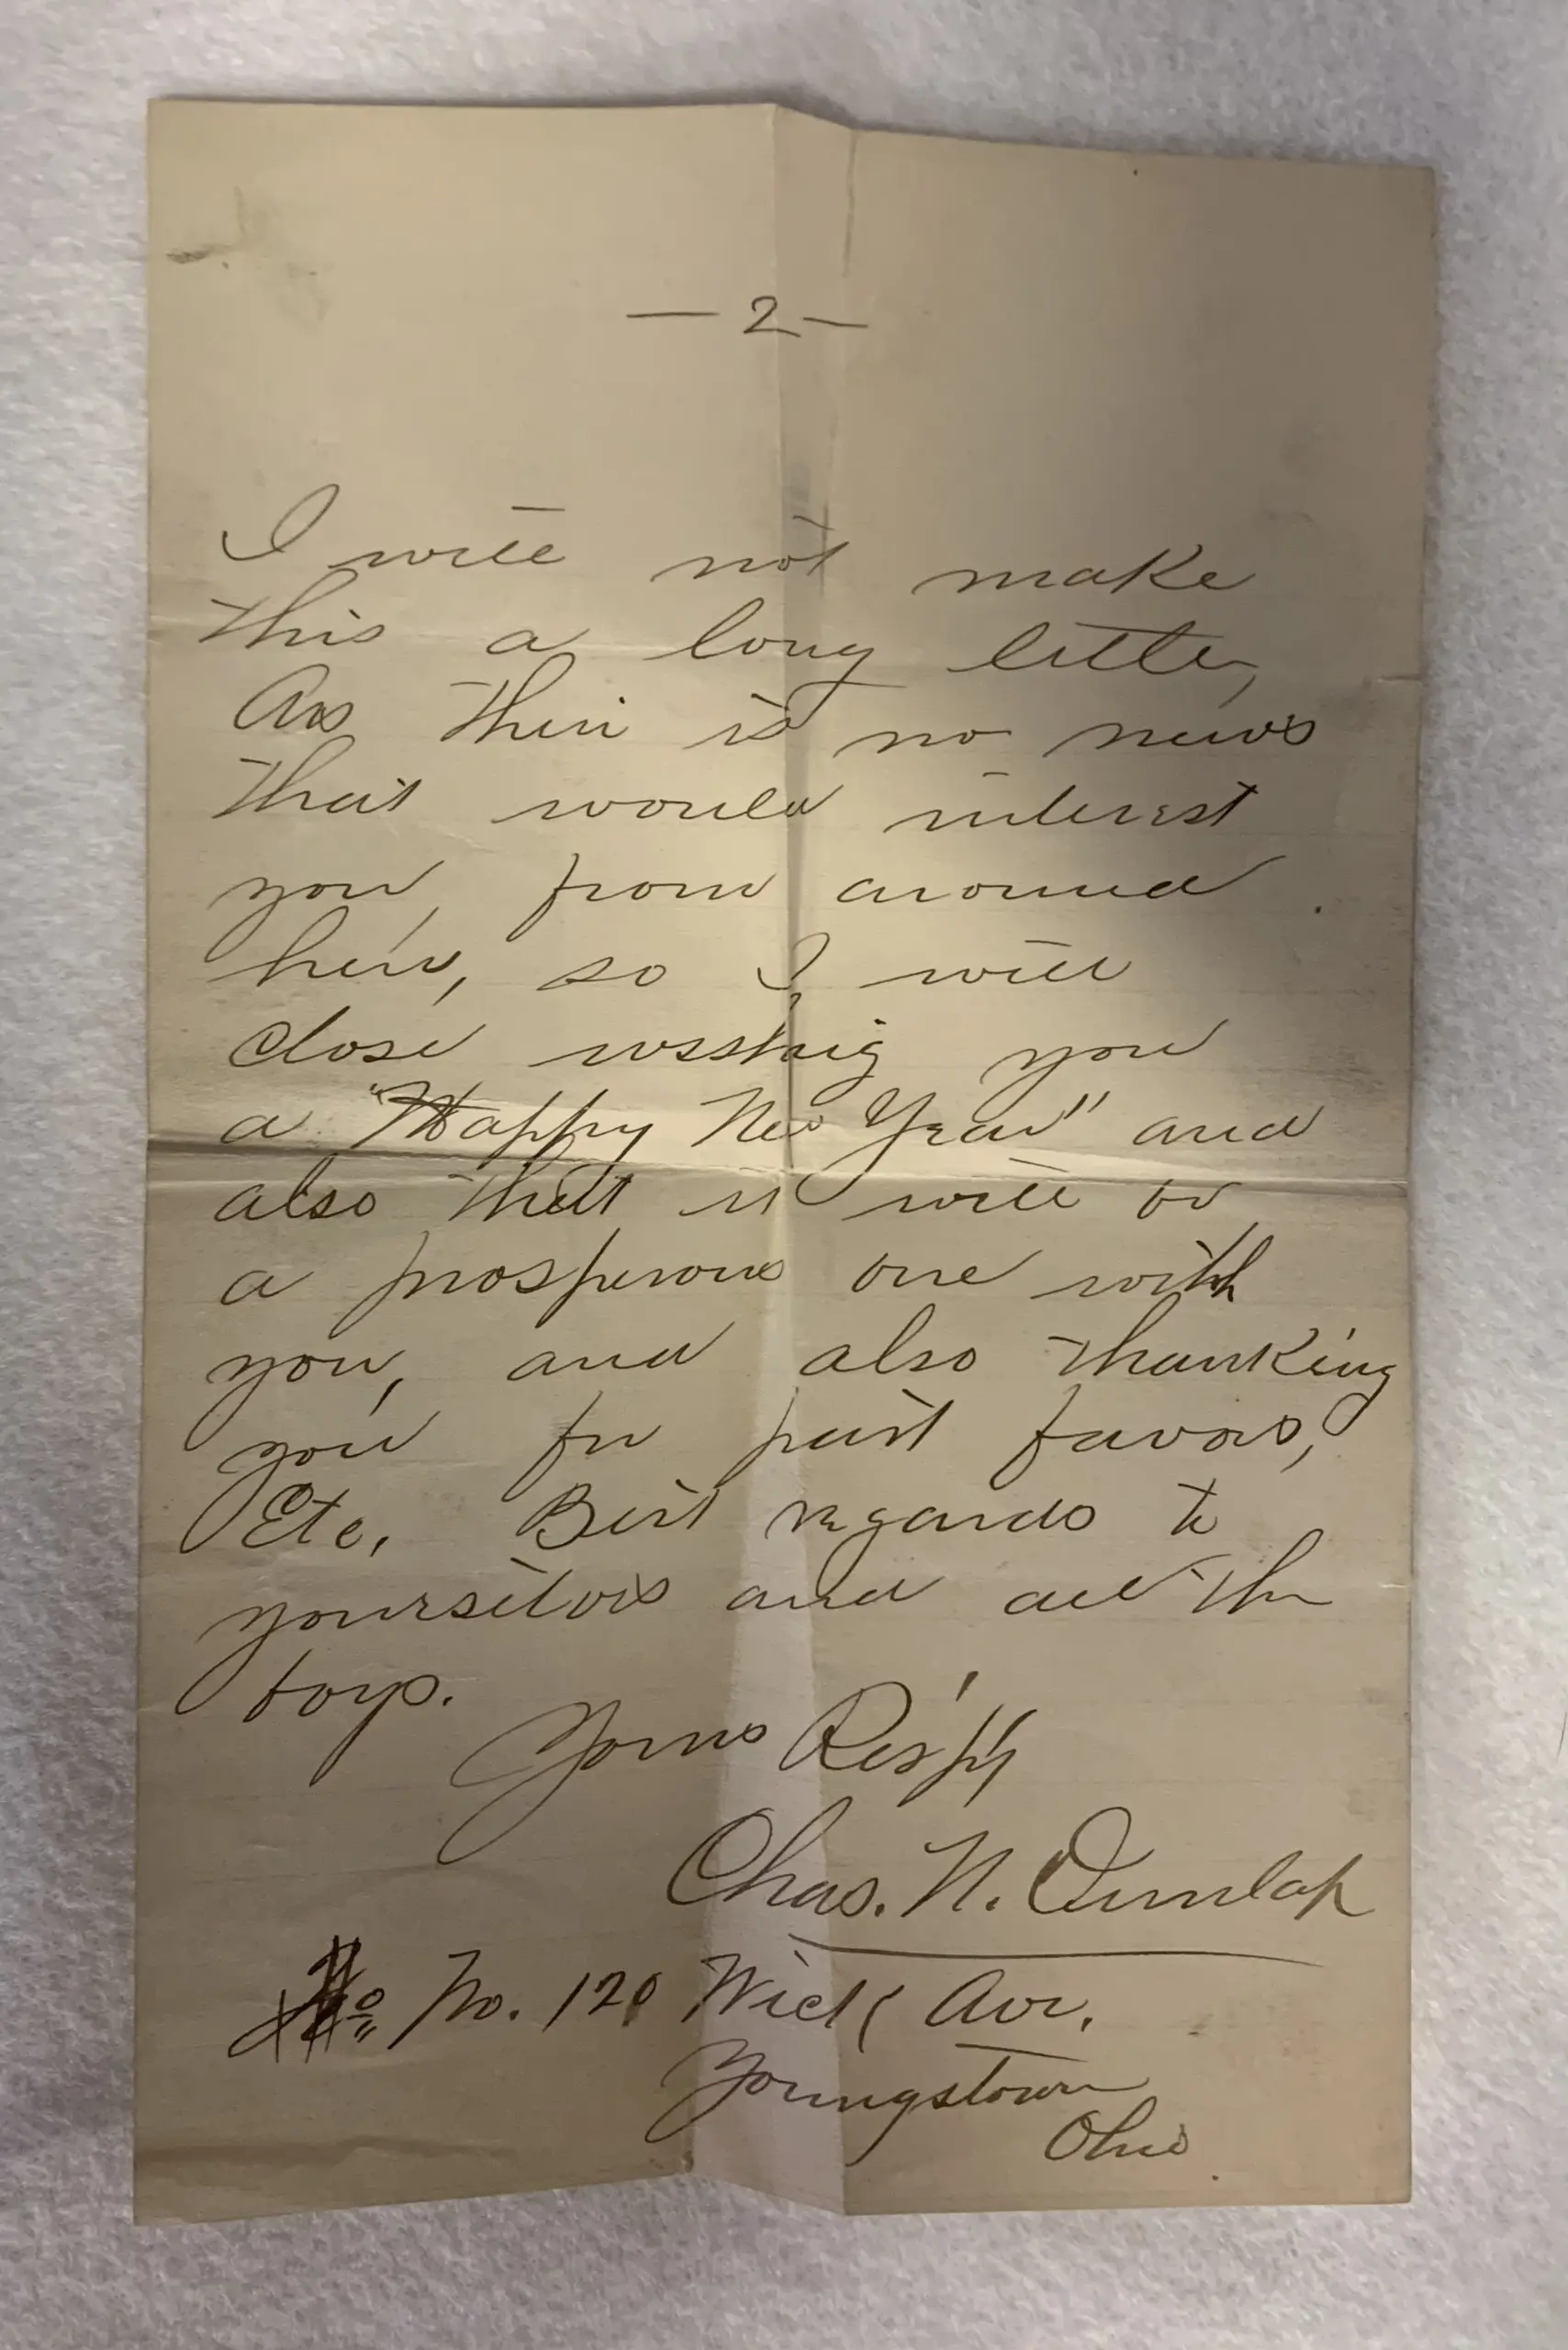 — 2 —
I will not make
this a long letter,
As their is no news
that would interest
you, from around
here, so I will
close wishing you
a "Happy New Year" and
also that it will be
a prosperous one with
you, and also thanking
you for past favors,
Etc. Best regards to
yourselves and all the
boys.
Yours Resp'fy
Chas. N. Dunlap
No. 120 Wick Ave.
Youngstown
Ohio